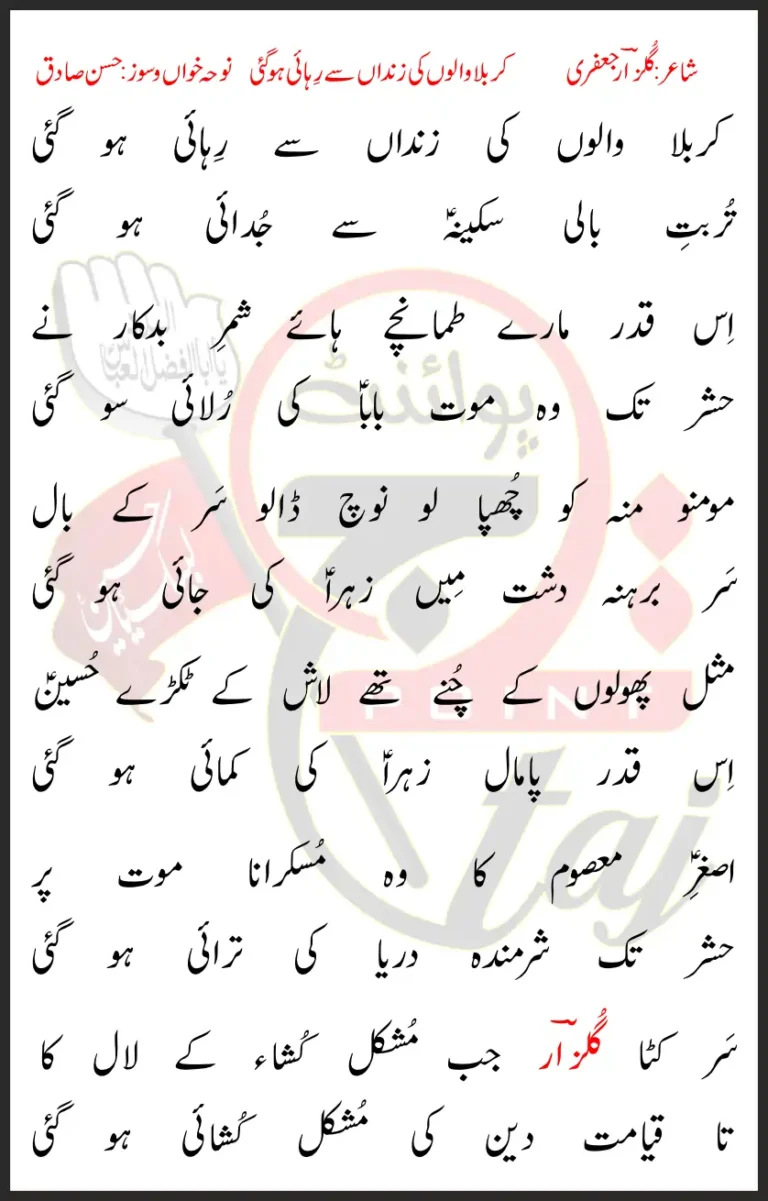 شاعر: گلزارؔ جعفری کربلا والوں کی زنداں سے رِہائی ہوگئی نوحہ خواں و سوز: حسن صادق
کربلا والوں کی زنداں سے رِہائی ہو گئی
تُربتِ بالی سکینہؑ سے جُدائی ہو گئی
اِس قدر مارے طمانچے ہائے شمرِ بدکار نے
حشر تک وہ موت باباؑ کی رُلائی سو گئی
مومنو منہ کو چُھپا لو نوچ ڈالو سَر کے بال
سَر برہنہ دشت مِیں زہراؑ کی جائی ہو گئی
مثل پھولوں کے چُنے تھے لاش کے ٹکڑے حُسینؑ
اِس قدر پامال زہراؑ کی کمائی ہو گئی
اصغرِؑ معصوم کا وہ مُسکرانا موت پر
حشر تک شرمندہ دریا کی ترائی ہو گئی
سَر کٹا گُلزارؔ جب مُشکل کُشاء کے لال کا
تا قیامت دین کی مُشکل کُشائی ہو گئی
پوائنٹ
تاج
POINT
taj
یا ابا الفضل العباس
لبیک یا حسین